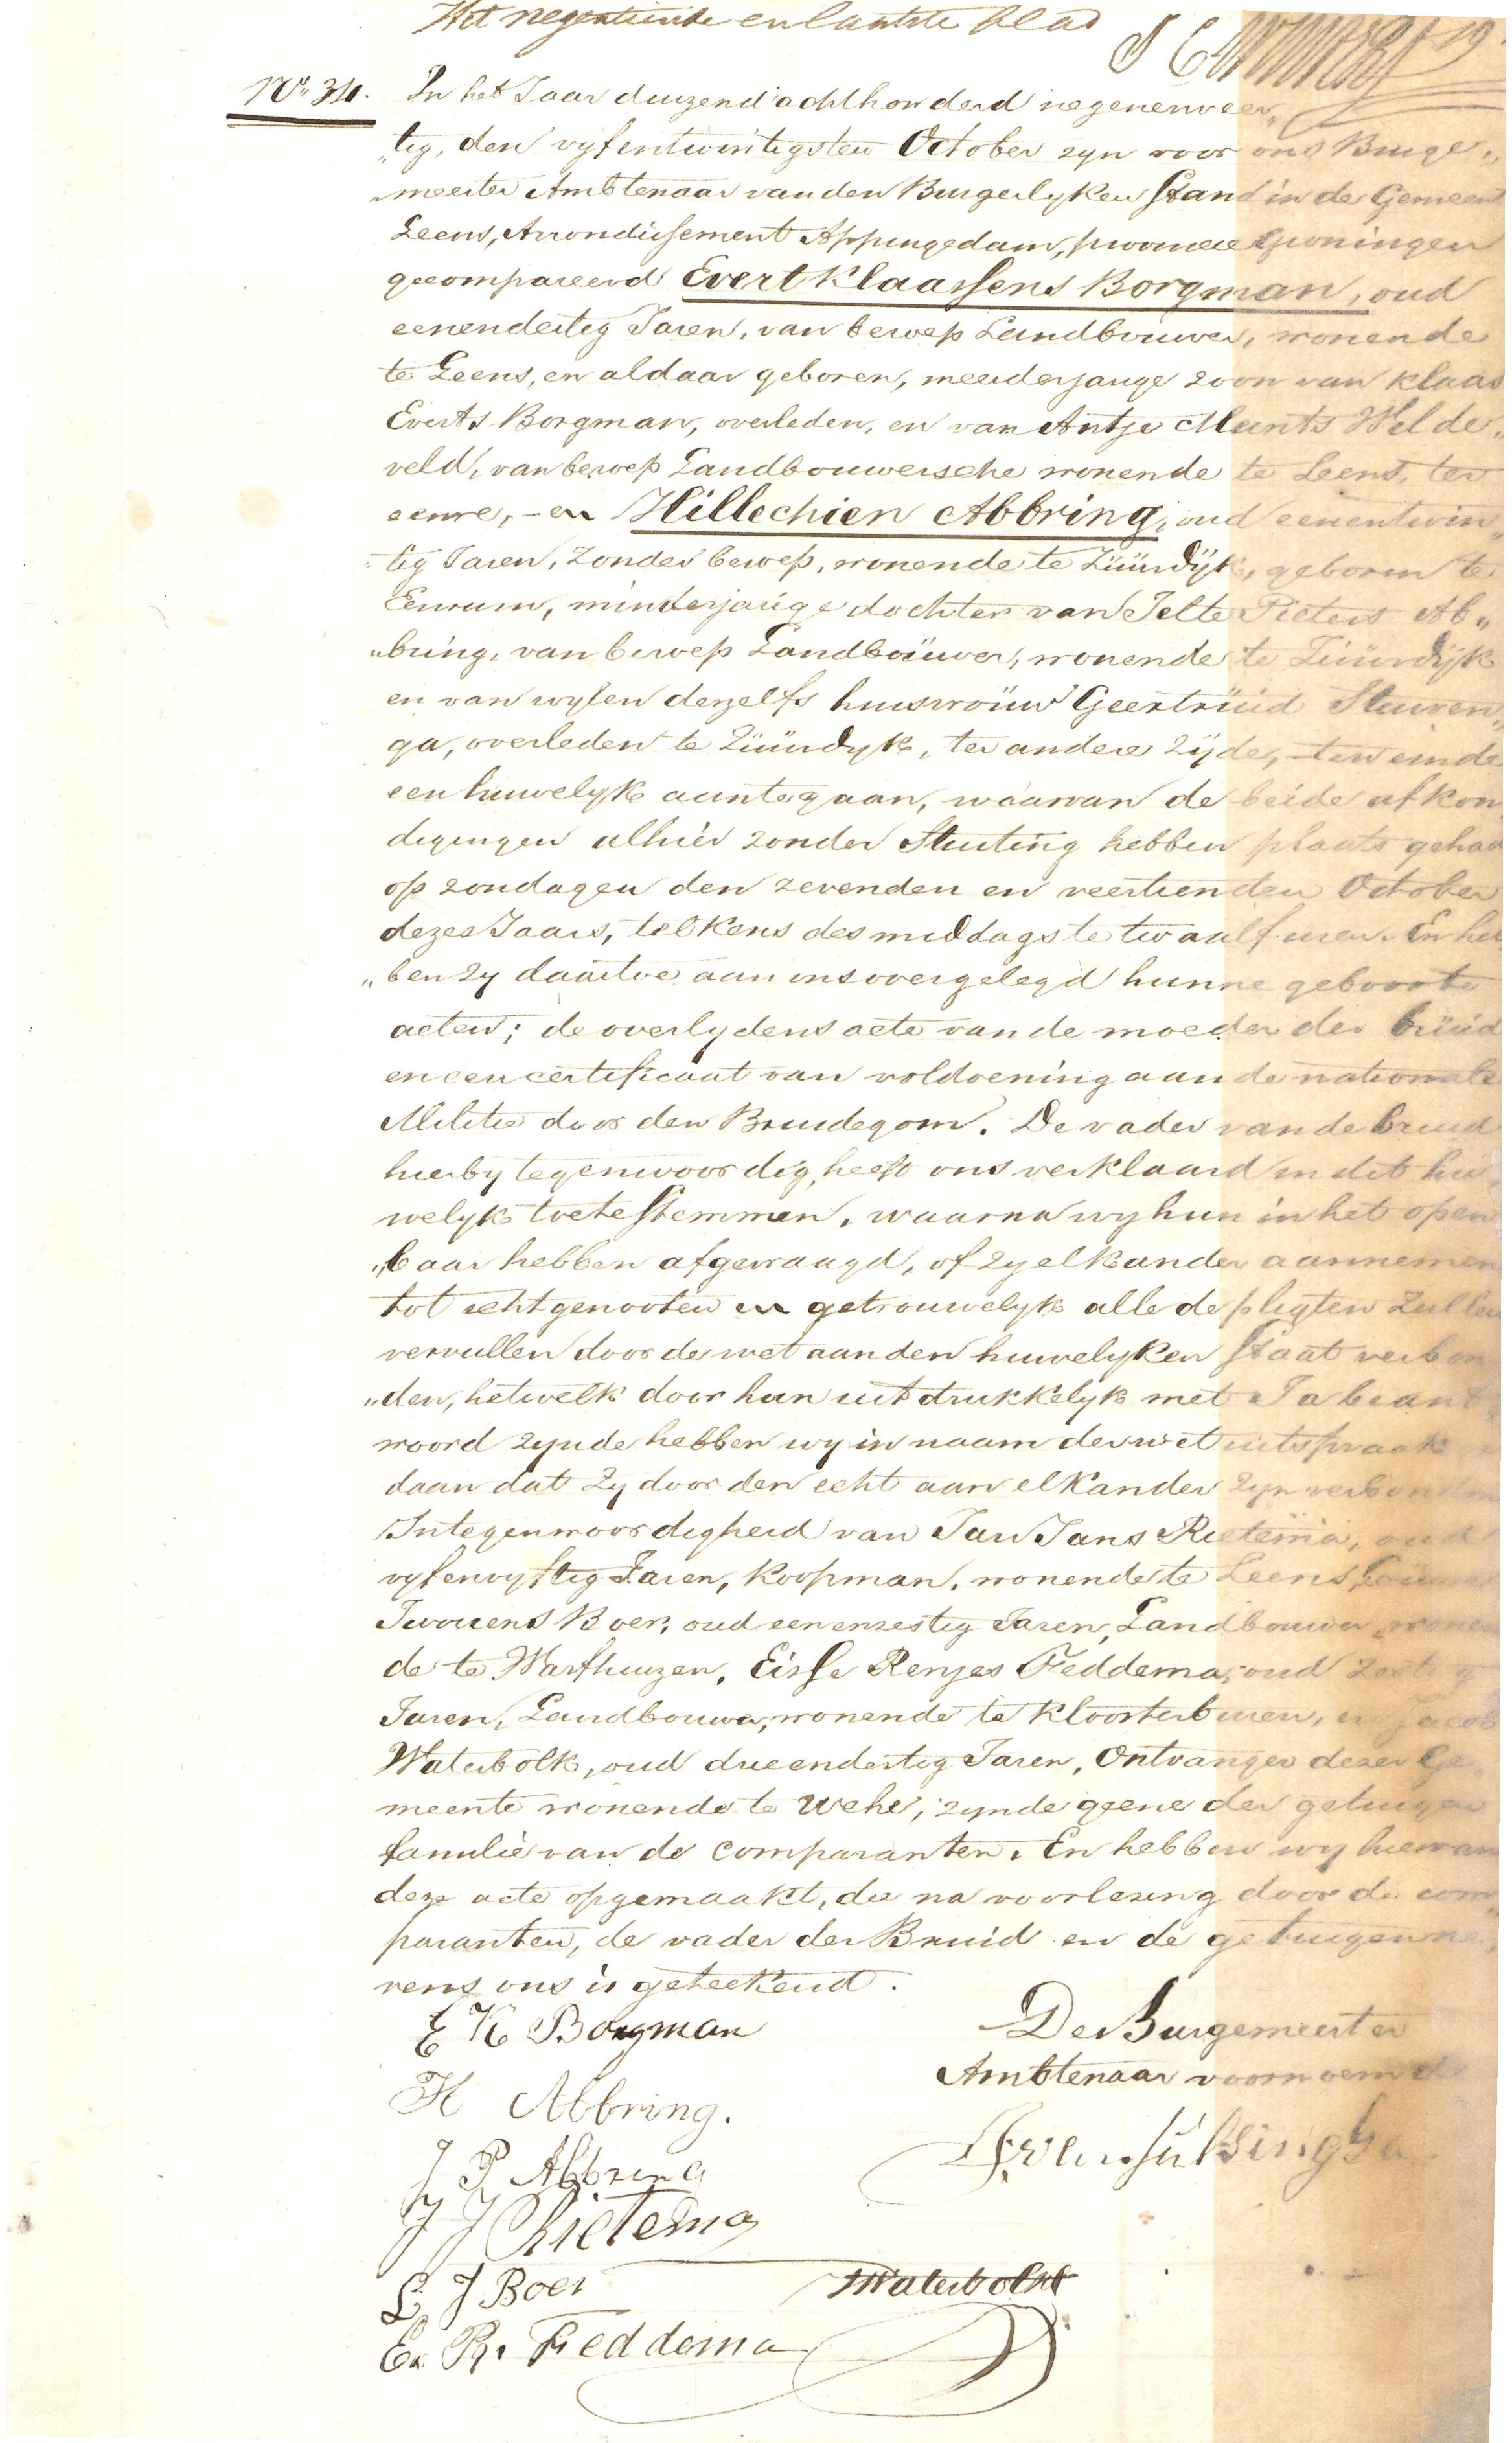 Het negentiende en laatste blad
No. 34. In het Jaar duizend achthonderd negenenveer„
„tig, den vyfentwintigsten October zyn voor ons Burge„
„meester Ambtenaar van den Burgerlyken Stand in de Gemeent
Leens, Arrondissement Appingedam, provincie Groningen
gecompareerd Evert Klaassens Borgman, oud
eenendertig Jaren, van beroep Landbouwer, wonende
te Leens, en aldaar geboren, meerderjarige zoon van Klaas
Everts Borgman, overleden, en van Antje Meints Welde„
veld, van beroep Landbouwersche wonende te Leens, ter
eenre, - en Hillechien Abbring, oud eenentwin„
„tig Jaren, zonder beroep, wonende te Züürdÿk, geboren te
Eenrum, minderjarige dochter van Jelte Pieters Ab„
„bring, van beroep Landboüwer, wonende te Züürdÿk
en van wylen derzelfs huisvroüw Geertrüid Stuiven„
ga, overleden te Züürdyk, ter andere Zÿde, - ten einde
een huwelyk aantegaan, waarvan de beide afkon„
digingen alhier zonder Stuiting hebben plaats gehad
op zondagen den zevenden en veertienden October
dezes Jaars, telkens des middags te twaalf uren. En heb
„ben zy daartoe aan ons overgelegd hunne geboorte
acten; de overlydens acte van de moeder der brüid
en een certificaat van voldoening aan de nationale
Militie door den Bruidegom. De vader van de bruid
hierby tegenwoordig, heeft ons verklaard in dit hu„
welyk toetestemmen, waarna wy hun in het open
„baar hebben afgevraagd, of zy elkander aannemen
tot echtgenooten en getrouwelyk alle de pligten zullen
vervullen door de wet aan den huwelyken staat verbon
„den, hetwelk door hun uitdrukkelyk met Ja beant„
woord zynde hebben wy in naam der wet uitspraak
daan dat Zy door den echt aan elkander zyn verbonden
In tegenwoordigheid van Jan Jans Rietema, oud
vyfenvyftig Jaren, Koopman, wonende te Leens,
Iwouens Boer, oud eenenzestig Jaren, Landbouwer, wonen
de te Warfhuizen, Eisse Renjes Feddema, oud zestig
Jaren, Landbouwer, wonende te Kloosterburen, en Jacob
Waterbolk, oud drieendertig Jaren, Ontvanger dezer Ge„
meente wonende te Wehe, zynde geene der getuigen
familie van de Comparanten. En hebben wy hiervan
deze acte opgemaakt, die na voorlezing door de com„
paranten, de vader der Bruid en de getuigen ne„
vens ons is geteekend.
E K Borgman
De Burgemeester
Ambtenaar voornoemd
H Abbring.
J P Abbring
J J Rietema
L J Boer
Waterbolk
E. R. Feddema